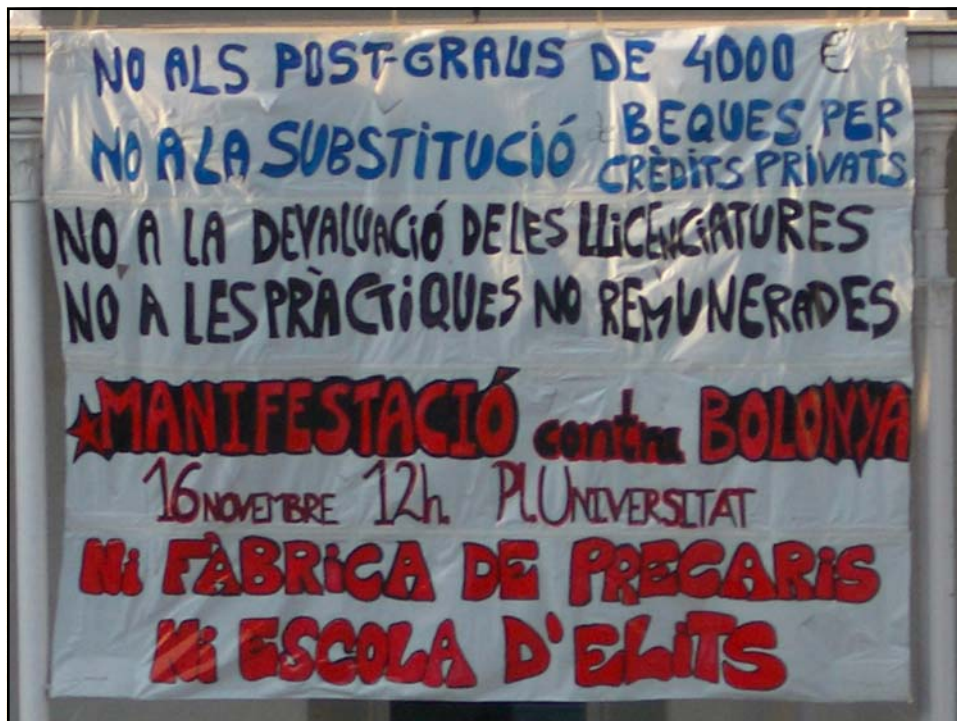 NO ALS POST-GRAUS DE 4000 €
NO A LA SUBSTITUCIÓ BEQUES PER CRÈDITS PRIVATS
NO A LA DEVALUACIÓ DE LES LLICENCIATURES
NO A LES PRÀCTIQUES NO REMUNERADES
MANIFESTACIÓ contra BOLONYA
16 NOVEMBRE 12h. Pl. UNIVERSITAT
Ni FÀBRiCA DE PRECARiS
Ni ESCOLA D'ELiTS